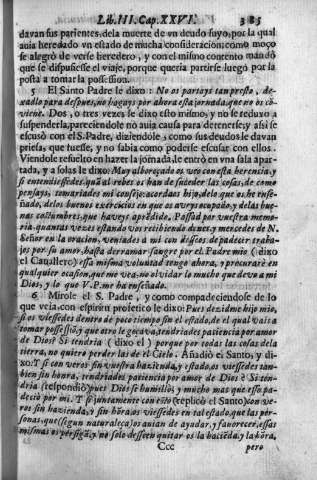 Lib. III. Cap. XXVI. 385
davan sus parientes, de la muerte de vn deudo suyo, por la qual
auia heredado vn estado de mucha consideracion: como moço
se alegrò de verse heredero, y con el mismo contento mandò
que se dispusiesse el viaje, porque queria partirse luego por la
posta a tomar la possession.
5 El Santo Padre le dixo: No os partays tan presto, de-
xadlo para despues, no hagays por ahora esta jornada, que no os cõ-
uiene. Dos, o tres vezes le dixo esto mismo, y no se reduxo a
suspenderla, pareciendole no auia causa para detenerse; y assi se
escusò con el S. Padre, diziendole, como sus deudos le davan
priesa, que fuesse, y no sabia como poderse escusar con ellos.
Viendole resuelto en hazer la jornada, le entrò en vna sala apar-
tada, y a solas le dixo: Muy alboroçado os veo con esta herencia, y
si entendiessedes quan al rebes se han de suceder las cosas, de como
pensays, tomariades mi consejo: acordaos hijo, de lo que os he ense-
ñado, de los buenos exercicios en que os aveys ocupado, y de las bue-
nas costumbres, que haveys aprẽdido. Passad por vuestra memo-
ria, quantas vezes estando vos recibiendo de mercedes de N.
Señor en la oracion, veniades a mi con desseos de padecer traba-
jos por su amor, hasta derramar sangre por el. Padre mio (dixo
el Cauallero) essa misma voluntad tengo ahora, y procurarè en
qualquier ocasion, que me vea, no olvidar lo mucho que devo a mi
Dios, y lo que V.P. me ha enseñado.
6 Mirole el S. Padre, y como compadeciendose de lo
que veia, con espiritu profetico le dixo: Pues dezidme hijo mio,
si os viessedes dentro de poco tiempo sin el estado, de el qual vais a
tomar possessiõ, y que otro le gozava, tendriades paciencia por amor
de Dios? Si tendria (dixo el) porque por todas las cosas de la
tierra, no quiero perder las de el Cielo. Añadiò el Santo, y di-
xo: Y si con veros sin vuestra haziẽda, y estado, os viessedes tam-
bien sin honra, tendriades paciencia por amor de Dios? Si ten-
dria (respondiò) pues Dios se humillò, y mucho mas que esso pa-
deciò por mi. Y si juntamente con esto (replicò el Santo) con ve-
ros sin hazienda, y sin hõra, os viessedes en tal estado, que las per-
sonas, que (segun naturaleça) os auian de ayudar, y fauorecer, essas
mismas os persigã, y no solo desseen quitar os la haciẽda, y la hõra,
Ccc pero